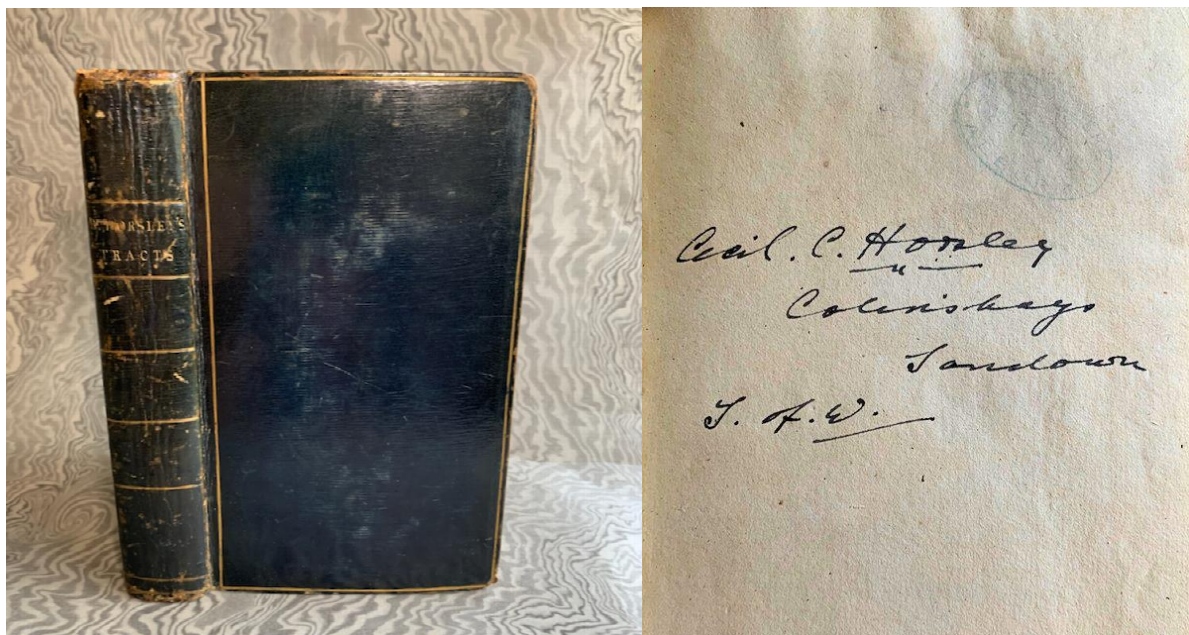 HORSLEY'S
TRACTS
Cecil. C. Horsley
Colenshays
Sandown
I. of. W.